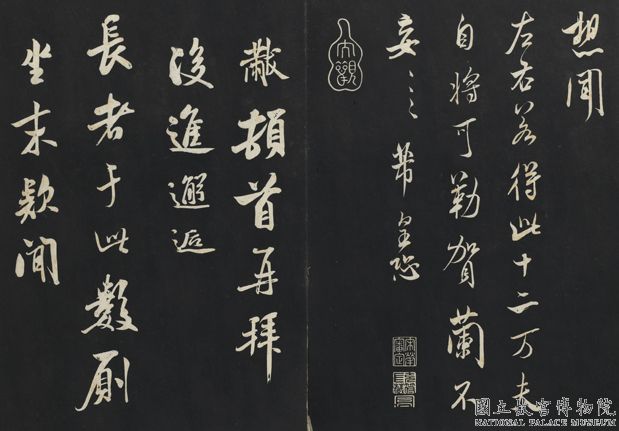 想聞
左右若得此十二万夫
自將可勒賀蘭不
妄〻〻 芾皇恐
大觀
黻頓首再拜
後進邂逅
長者于此數厠
坐末款聞
國立故宮博物院
NATIONAL PALACE MUSEUM